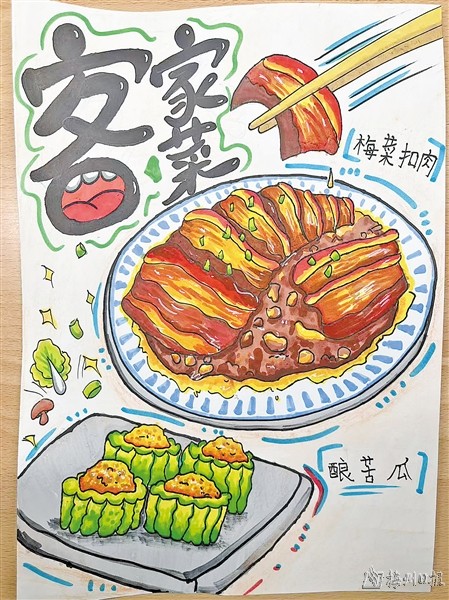 客家菜
梅菜扣肉
酿苦瓜
梅州日报